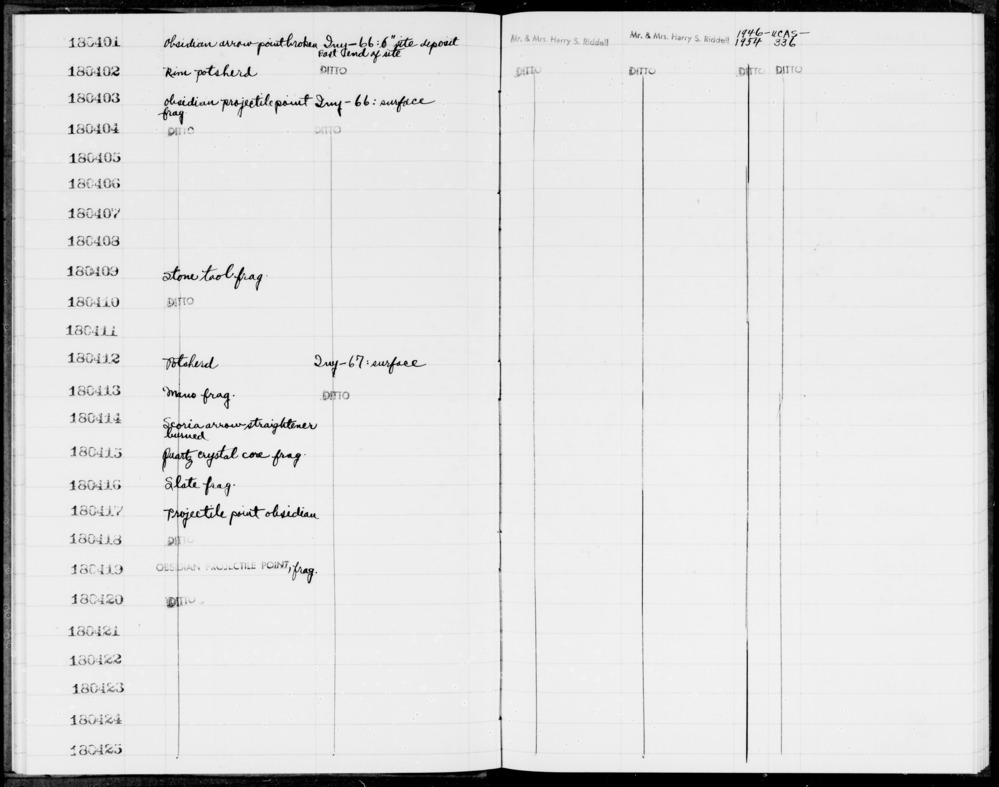 180401 Obsidian arrow point broken Iny-66: 6" site deposit Mr. & Mrs. Harry S. Riddell Mr. & Mrs. Harry S. Riddell 1946- UCAS-
East end of site 1954 336
180402 Rim potsherd DITTO DITTO DITTO DITTO DITTO
180403 obsidian projectile point Iny-66: surface
frag
180404 DITTO DITTO
180405
180406
180407
180408
180409 Stone tool frag.
180410 DITTO
180411
180412 Potsherd Iny-67: surface
180413 Mano frag. DITTO
180414 Scoria arrow straightener
burned
180415 Quartz crystal core frag.
180416 Slate frag.
180417 Projectile point obsidian
180418 DITTO
180419 OBSIDIAN PROJECTILE POINT, frag.
180420 DITTO
180421
180422
180423
180424
180425